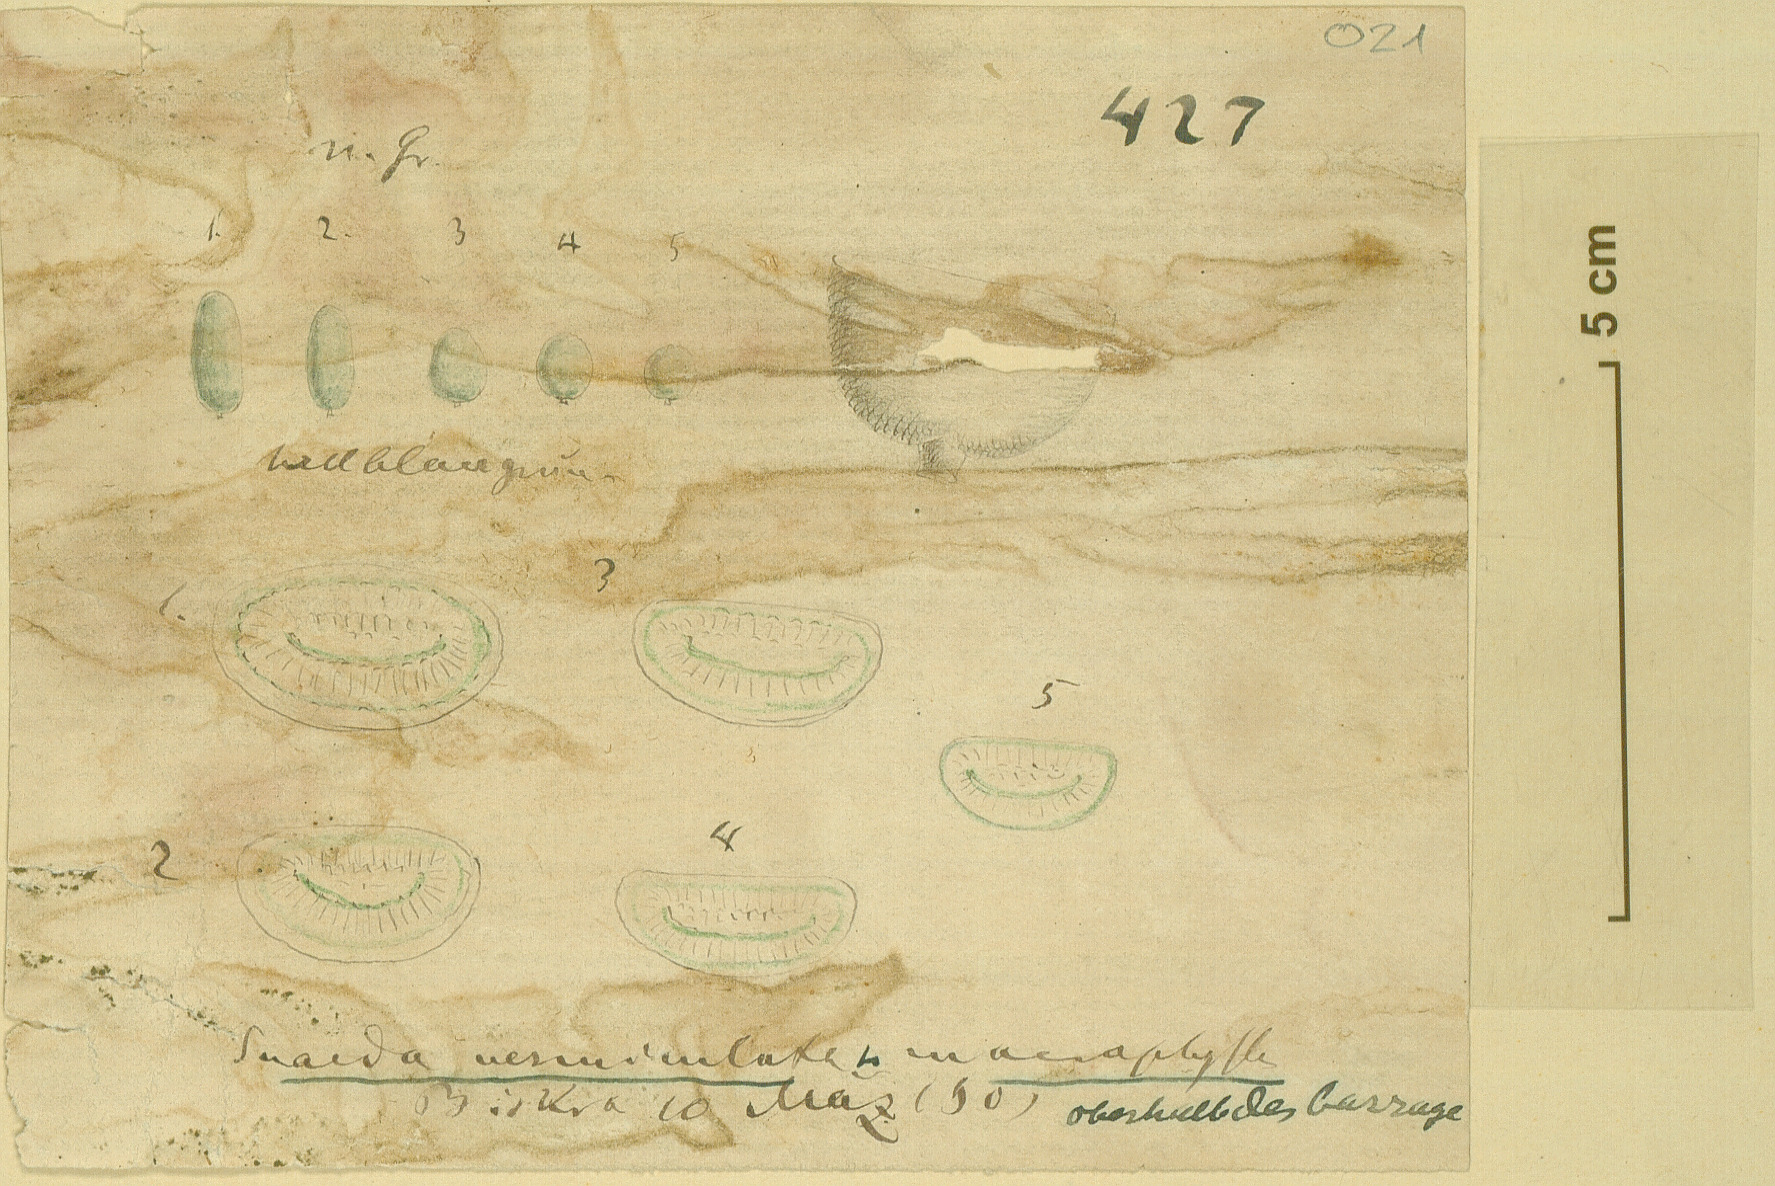 021
427
n. Gr.
1. 2. 3 4 5
hellblaugrün
1. 3
5
2 4
Suaeda vermiculata v. macrophylla
Biskra 10 März (90) oberhalb des barrage
5 cm